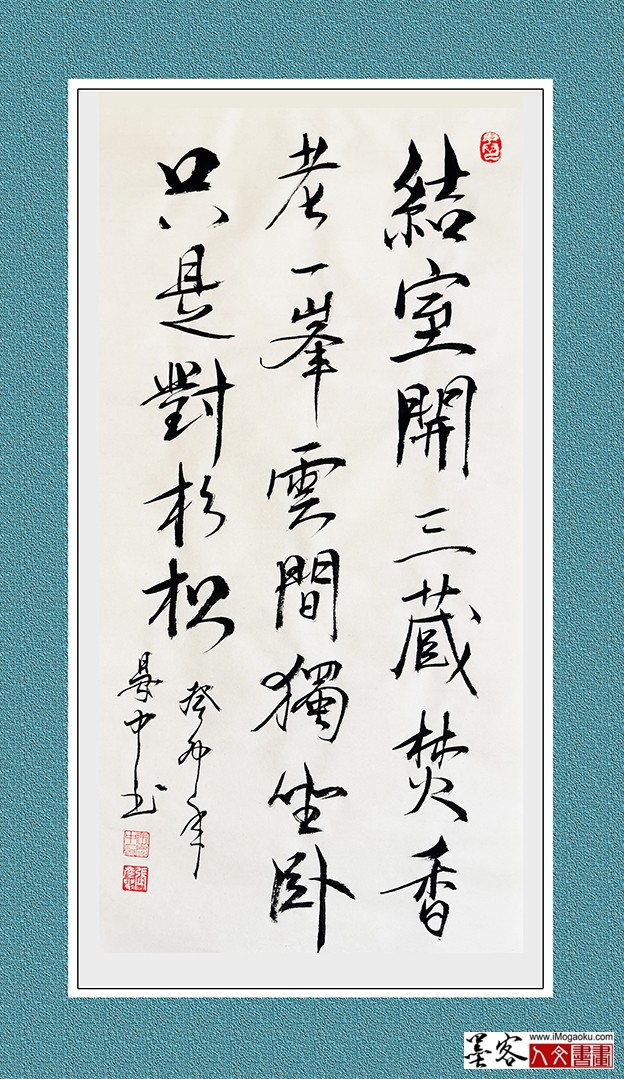 結室開三蔵焚香
老一峯雲間獨坐卧
只是對杉松
癸卯年
中书
墨客
www.iMogaoku.com
人文書畫